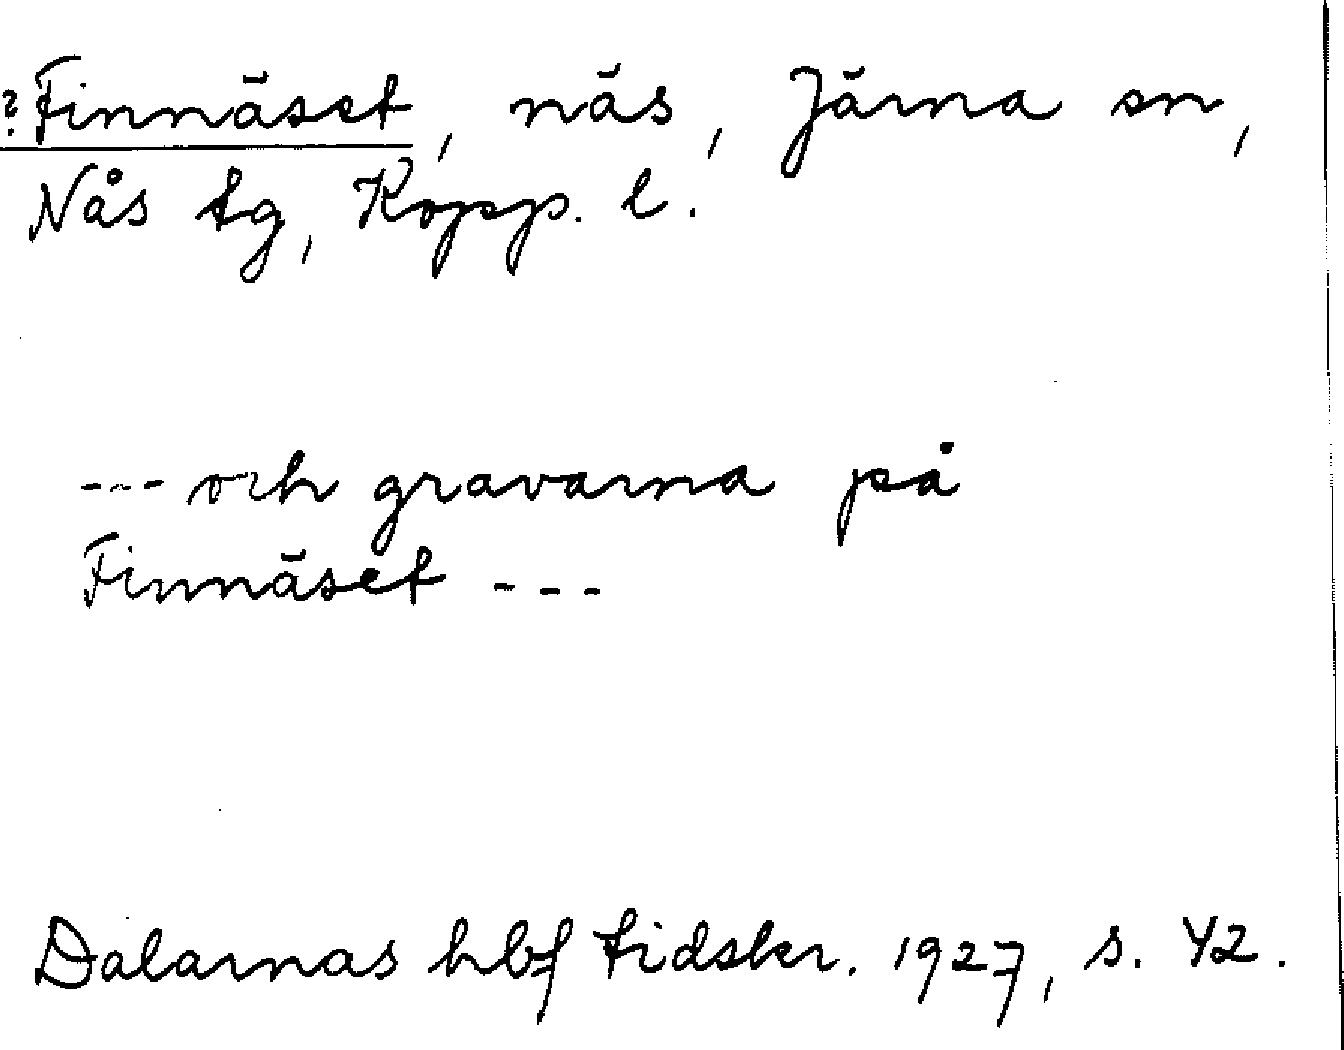 ? Finnäset, näs, Järna sn,
Nås tg, Kopp. l.
--- och gravarna på
Finnäset ---
Dalarnas hbf tidskr. 1927, s. 42.